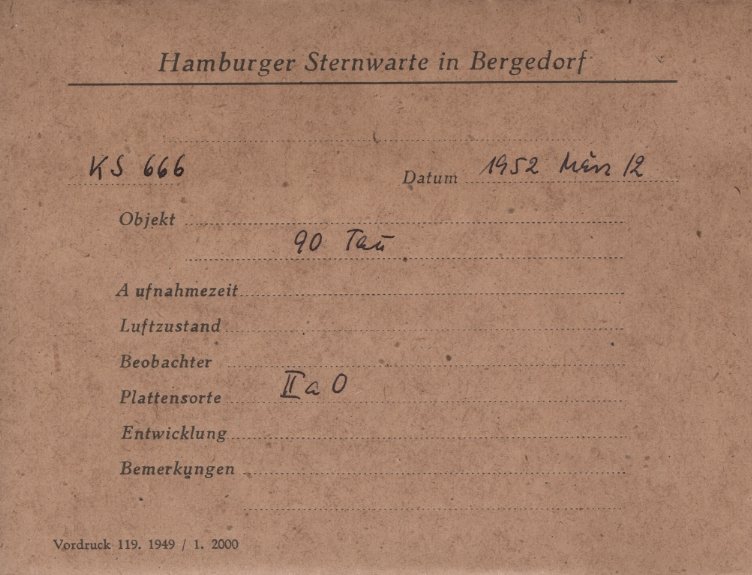 Hamburger Sternwarte in Bergedorf
KS 666 Datum 1952 März 12
Objekt
90 Tau
Aufnahmezeit
Luftzustand
Beobachter
Plattensorte II a O
Entwicklung
Bemerkungen
Vordruck 119. 1949 / 1. 2000